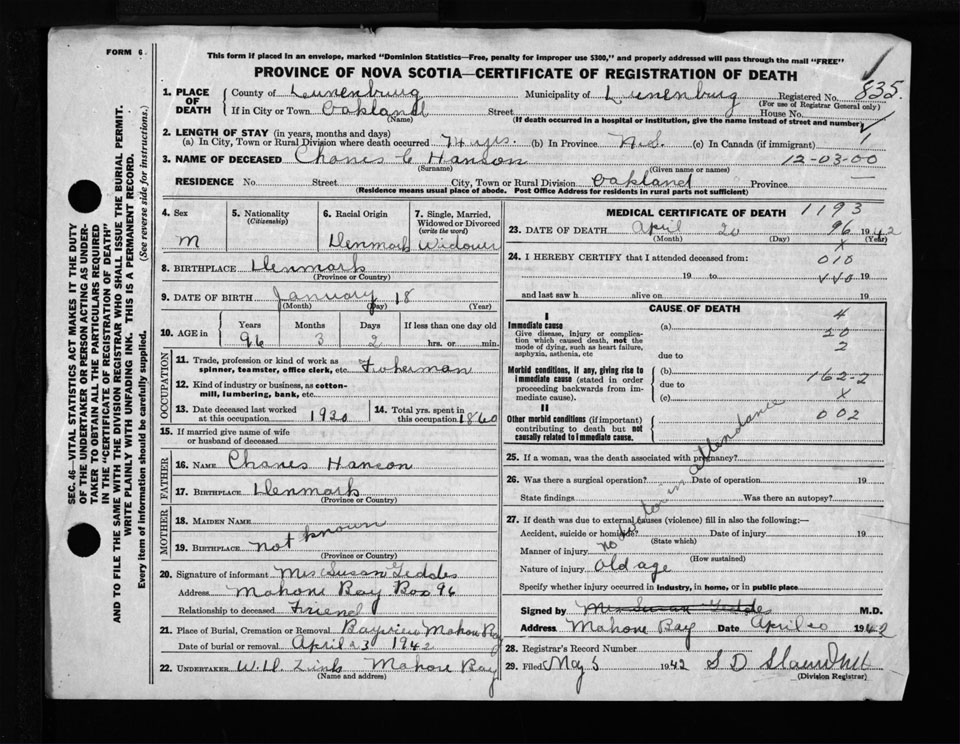 FORM 6
This form if placed in an envelope, marked "Dominion Statistics—Free, penalty for improper use $300," and properly addressed will pass through the mail "FREE"
PROVINCE OF NOVA SCOTIA—CERTIFICATE OF REGISTRATION OF DEATH
SEC. 46—VITAL STATISTICS ACT MAKES IT THE DUTY
OF THE UNDERTAKER OR PERSON ACTING AS UNDER-
TAKER TO OBTAIN ALL THE PARTICULARS REQUIRED
IN THE "CERTIFICATE OF REGISTRATION OF DEATH"
AND TO FILE THE SAME WITH THE DIVISION REGISTRAR WHO SHALL ISSUE THE BURIAL PERMIT.
WRITE PLAINLY WITH UNFADING INK. THIS IS A PERMANENT RECORD.
Every item of information should be carefully supplied. (See reverse side for instructions.)
1. PLACE OF DEATH
County of Lunenburg Municipality of Lunenburg Registered No. 835.
(For use of Registrar General only)
If in City or Town Oakland Street House No.
(Name) (If death occurred in a hospital or institution, give the name instead of street and number)
2. LENGTH OF STAY (in years, months and days)
(a) In City, Town or Rural Division where death occurred 74 yrs. (b) In Province N.S. (c) In Canada (if immigrant)
3. NAME OF DECEASED Charles C Hanson 12-03-00
(Surname) (Given name or names)
RESIDENCE No. Street City, Town or Rural Division Oakland Province
(Residence means usual place of abode. Post Office Address for residents in rural parts not sufficient)
4. Sex
M
5. Nationality
(Citizenship)
6. Racial Origin
Denmark
7. Single, Married, Widowed or Divorced
(write the word)
Widower
8. BIRTHPLACE Denmark
(Province or Country)
9. DATE OF BIRTH January 18
(Month) (Day) (Year)
10. AGE in
Years Months Days If less than one day old
96 3 2 hrs. or min.
OCCUPATION
11. Trade, profession or kind of work as spinner, teamster, office clerk, etc. Fisherman
12. Kind of industry or business, as cotton-mill, lumbering, bank, etc.
13. Date deceased last worked at this occupation 1920
14. Total yrs. spent in this occupation 1860
15. If married give name of wife or husband of deceased
FATHER
16. NAME Charles Hanson
17. BIRTHPLACE Denmark
(Province or Country)
MOTHER
18. MAIDEN NAME
19. BIRTHPLACE not known
(Province or Country)
20. Signature of informant Mrs Susan Geddes
Address Mahone Bay Box 96
Relationship to deceased Friend
21. Place of Burial, Cremation or Removal Bayview Mahone Bay
Date of burial or removal April 23 1942
22. UNDERTAKER W.H. Zinks Mahone Bay
(Name and address)
MEDICAL CERTIFICATE OF DEATH 1193
23. DATE OF DEATH April 20 96 1942
(Month) (Day) (Year)
24. I HEREBY CERTIFY that I attended deceased from: X 010
19 to 19
and last saw h alive on 19
CAUSE OF DEATH
I
Immediate cause
Give disease, injury or complication which caused death, not the mode of dying, such as heart failure, asphyxia, asthenia, etc
(a) 4
20
due to 2
Morbid conditions, if any, giving rise to immediate cause (stated in order proceeding backwards from immediate cause).
(b)
due to 162-2
(c) X
II
Other morbid conditions (if important) contributing to death but not causally related to immediate cause.
002
25. If a woman, was the death associated with pregnancy?
26. Was there a surgical operation? Date of operation 19
State findings Was there an autopsy?
27. If death was due to external causes (violence) fill in also the following:—
Accident, suicide or homicide? Date of injury 19
(State which)
Manner of injury
(How sustained)
no doctor in attendance
Nature of injury Old age
Specify whether injury occurred in industry, in home, or in public place
Signed by Mrs Susan Gedde M.D.
Address Mahone Bay Date April 20 1942
28. Registrar's Record Number
29. Filed May 5 1942
(Division Registrar)